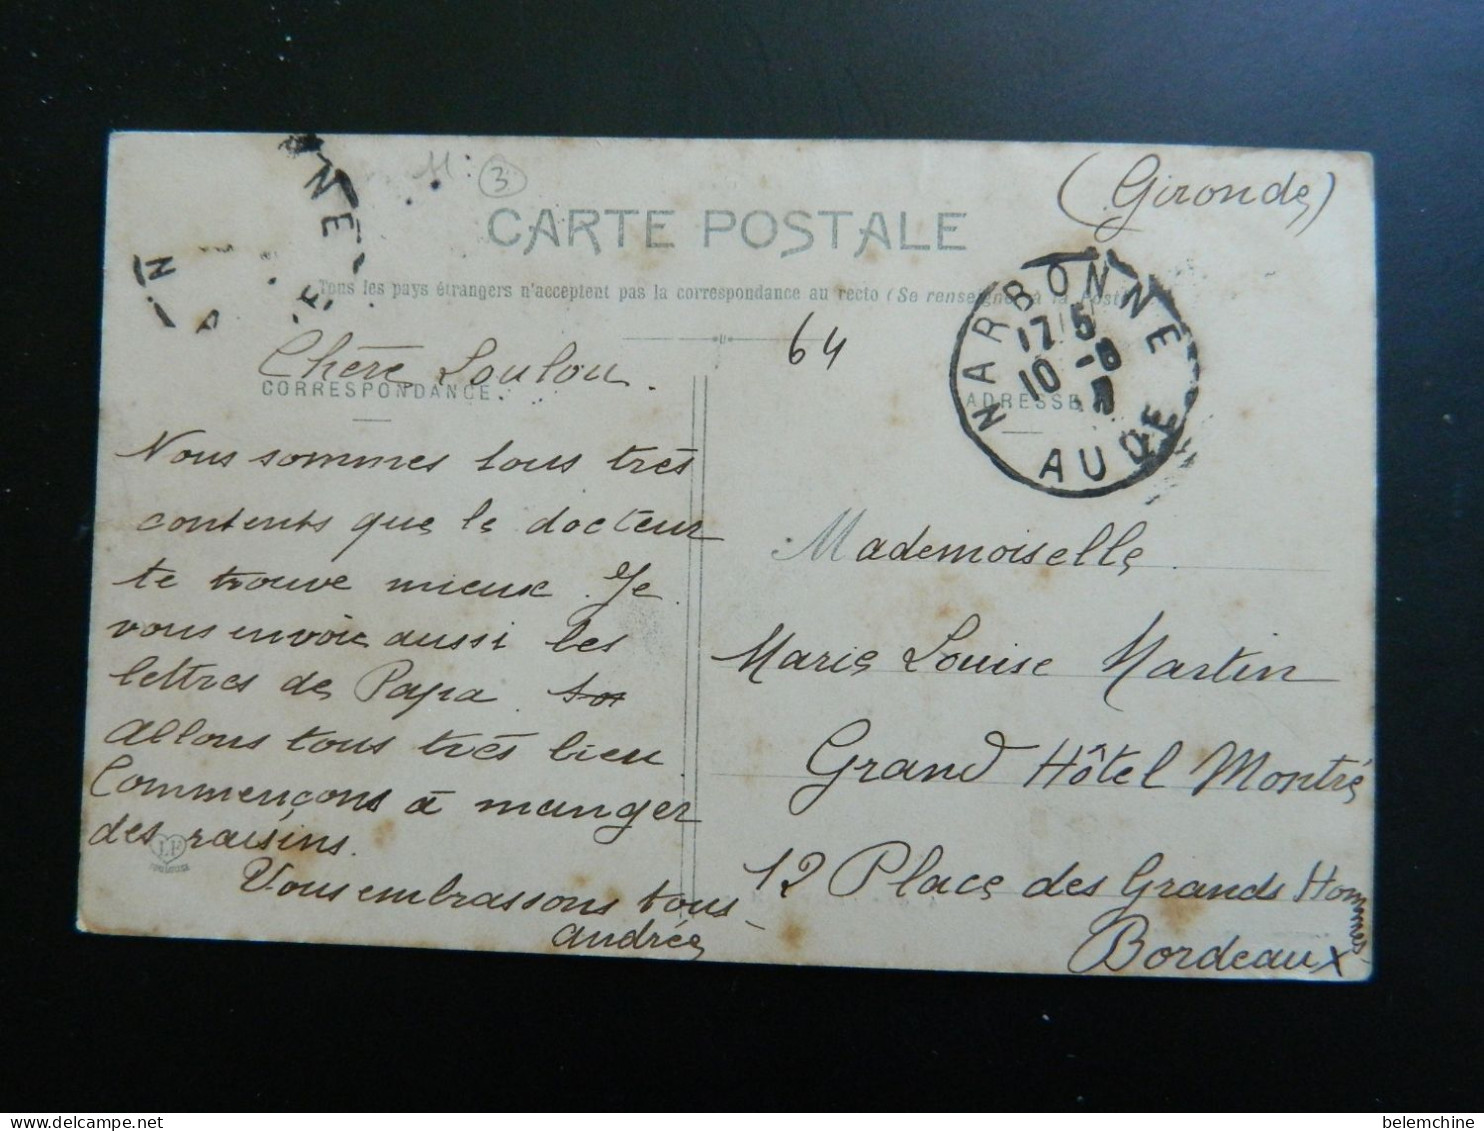 (Gironde)
3
CARTE POSTALE
Tous les pays étrangers n'acceptent pas la correspondance au recto (Se renseigner à la Poste)
NARBONNE
17 15
10 -8
AUDE
64
Chère Loulou.
CORRESPONDANCE
ADRESSE
Nous sommes tous très
contents que le docteur
te trouve mieux. Je
vous envoie aussi les
lettres de Papa.
Allons tous très bien.
Commençons à manger
des raisins.
Vous embrassons tous
Andrée
LF
TOULOUSE
Mademoiselle
Marie Louise Martin
Grand Hôtel Montré
12 Place des Grands Hommes
Bordeaux
belemchine